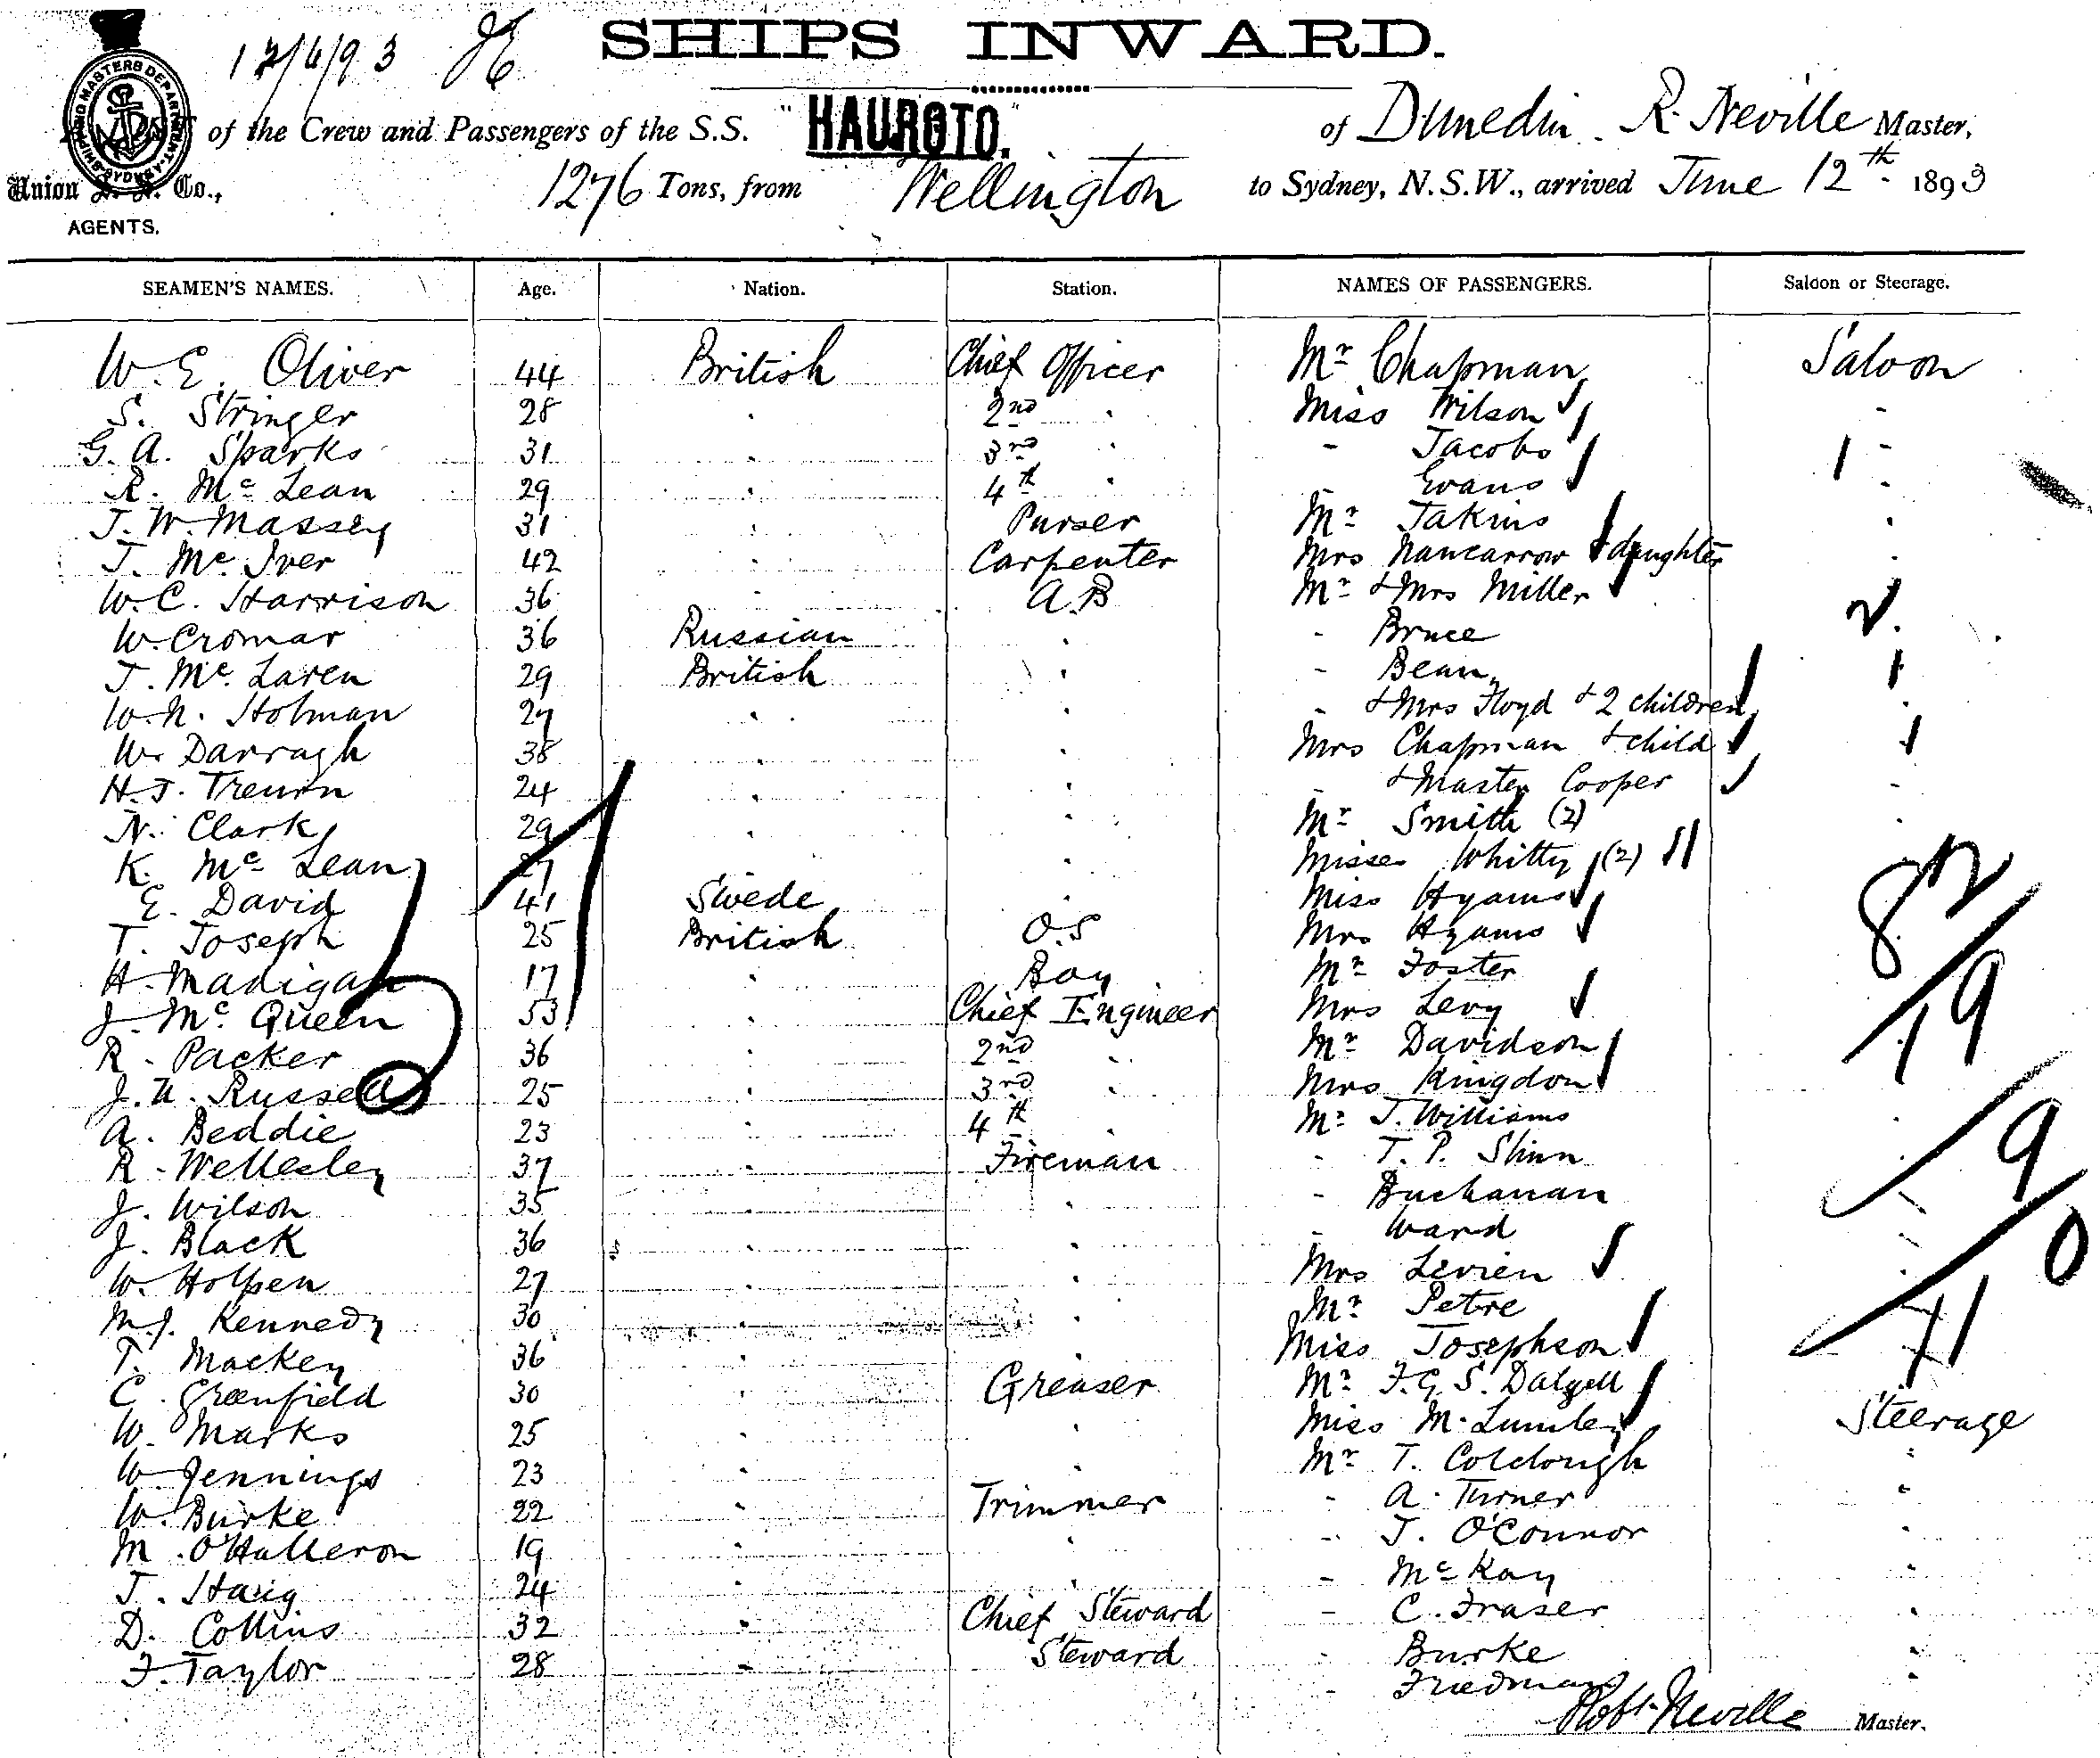 12/6/93
SHIPS INWARD.
SHIPPING MASTERS DEPARTMENT SYDNEY
LIST of the Crew and Passengers of the S.S. "HAUROTO." of Dunedin. R. Neville Master,
Union S. S. Co., AGENTS. 1276 Tons, from Wellington to Sydney, N.S.W., arrived June 12th 1893
SEAMEN'S NAMES. Age. Nation. Station. NAMES OF PASSENGERS. Saloon or Steerage.
W. E. Oliver 44 British Chief Officer Mr Chapman Saloon
S. Stringer 28 " 2nd " Miss Wilson "
G. A. Sparks 31 " 3rd " " Jacobs 1 "
R. Mc Lean 29 " 4th " " Evans "
J. W. Massey 31 " Purser Mr Jakins "
J. Mc Iver 42 " Carpenter Mrs Nancarrow & daughter "
W. C. Harrison 36 " A.B Mr & Mrs Miller
W. Cromar 36 Russian " " Bruce 2
J. Mc Laren 29 British " " Bean 1
W. N. Holman 27 " " " & Mrs Floyd & 2 children "
W. Darragh 38 " " Mrs Chapman & child 1
H. J. 24 " " " & Master Cooper "
N. Clark 29 " " Mr Smith (2) "
K. Mc Lean 27 " " Misses Whitty (2) 82
E. David 41 Swede " Miss Hyams
T. Joseph 25 British O.S Mrs Hyams
H. Madigan 17 " Boy Mr Foster 19
J. Mc Queen 53 " Chief Engineer Mrs Levy
R. Packer 36 " 2nd " Mr Davidson
J. U. Russell 25 " 3rd " Mrs Kingdon
A. Beddie 23 " 4th " Mr J. Williams "
R. Wellesley 37 " Fireman " T. P. Shinn 9
J. Wilson 35 " " " Buchanan
J. Black 36 " " " Ward 0
W. Holpen 27 " " Mrs Levien "
M. J. Kennedy 30 " " Mr Petre
T. Mackey 36 " " Miss Josephson
C. Greenfield 30 " Greaser Mr F. G. S. Dalgell
W. Marks 25 " " Miss M. Lumley Steerage
W. Jennings 23 " " Mr T. Colclough "
W. Burke 22 " Trimmer " A. Turner "
M. O'Halleron 19 " " " J. O'Connor "
J. Haig 24 " " " Mc Kay "
D. Collins 32 " Chief Steward " C. Fraser "
F. Taylor 28 " Steward " Burke "
" Friedman "
Robt Neville Master.